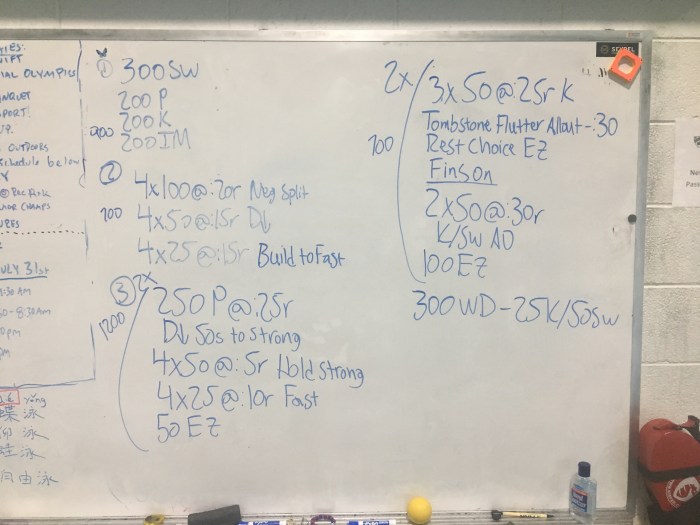 IAL OLYMPICS
NQUET
PORT!
UP.
OUTDOORS
Schedule below
JULY 31st
:30 AM
0-8:30AM
0pm
pm
yǒng
蝶泳
仰泳
蛙泳
自由泳
① 300SW
200 P
200 K
900 200 IM
②
4x100@:20r Neg Split
700 4x50@:15r D↓
4x25@:15r Build to Fast
③ 2x
1200 250P@:25r
D↓ 50s to Strong
4x50@:5r Hold Strong
4x25@:10r Fast
50 EZ
2x
3x50@:25r K
Tombstone Flutter Allout-:30
700 Rest Choice EZ
Fins on
2x50@:30r
K/SW AO
100 EZ
300 WD-25K/50SW